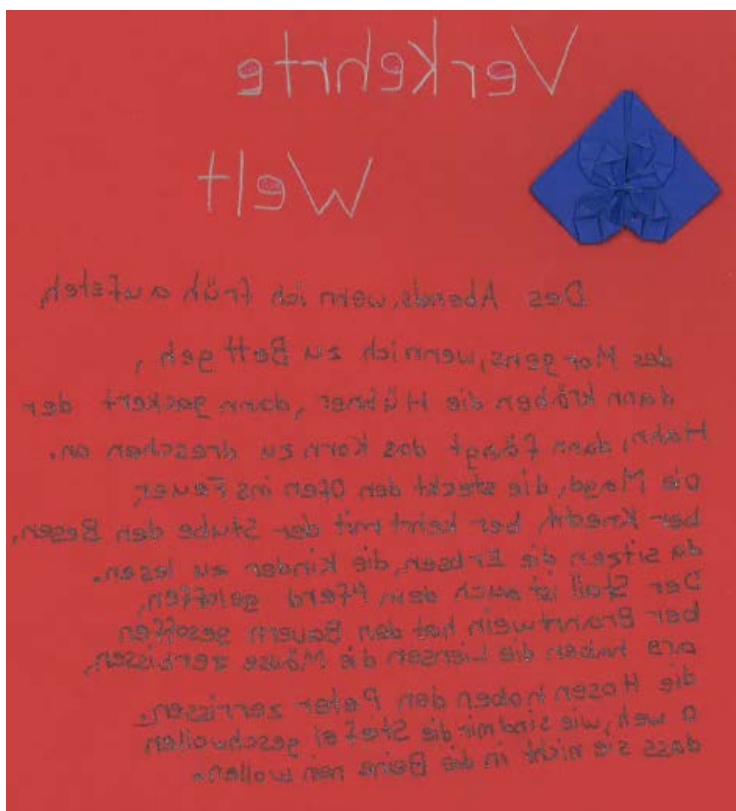 Verkehrte
Welt
Des Abends, wenn ich früh aufsteh,
des Morgens, wenn ich zu Bett geh,
dann krähen die Hühner, dann gackert der
Hahn, dann fängt das Korn zu dreschen an.
Die Magd, die steckt den Ofen ins Feuer,
ber Knecht, ber kehrt mit der Stube den Besen,
da sitzen die Erbsen, die Kinder zu lesen.
Der Stall ist auch dem Pferd geloffen,
ber Branntwein hat den Bauern gesoffen
haben die die Mäuse zerbissen,
die Hosen haben den Peter zerrissen.
O weh, wie sind mir die geschwollen
dass sie nicht in die Beine nen wollen.